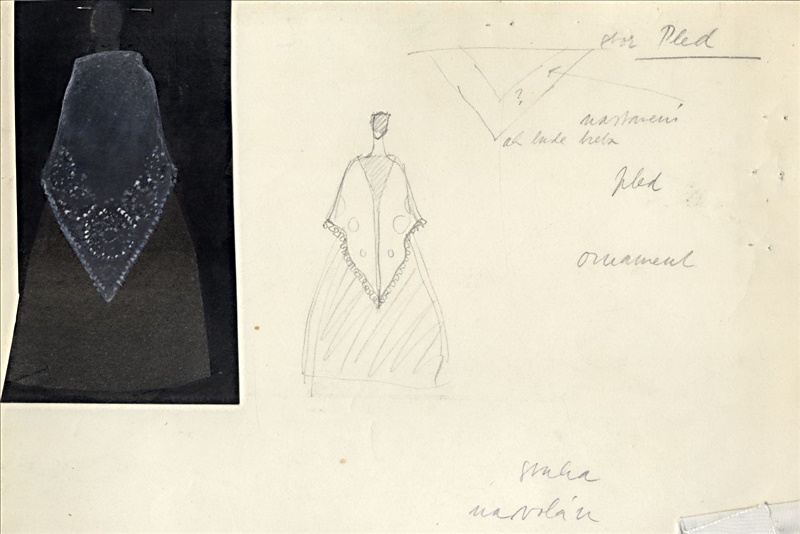 sbor Pled
?
nastavení
ať bude třeba
pled
ornament
stuha
na volán